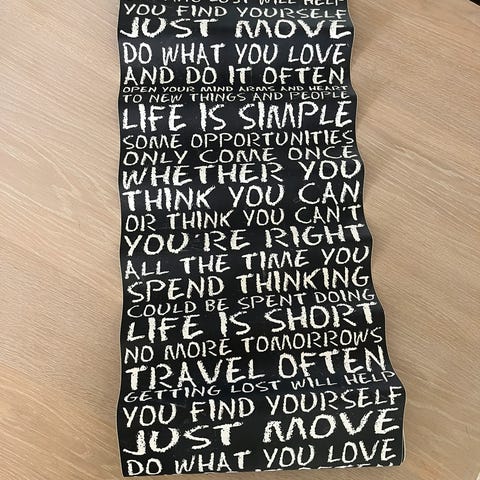 LOST WILL HELP
YOU FIND YOURSELF
JUST MOVE
DO WHAT YOU LOVE
AND DO IT OFTEN
OPEN YOUR MIND ARMS AND HEART
TO NEW THINGS AND PEOPLE
LIFE IS SIMPLE
SOME OPPORTUNITIES
ONLY COME ONCE
WHETHER YOU
THINK YOU CAN
OR THINK YOU CAN'T
YOU'RE RIGHT
ALL THE TIME YOU
SPEND THINKING
COULD BE SPENT DOING
LIFE IS SHORT
NO MORE TOMORROWS
TRAVEL OFTEN
GETTING LOST WILL HELP
YOU FIND YOURSELF
JUST MOVE
DO WHAT YOU LOVE